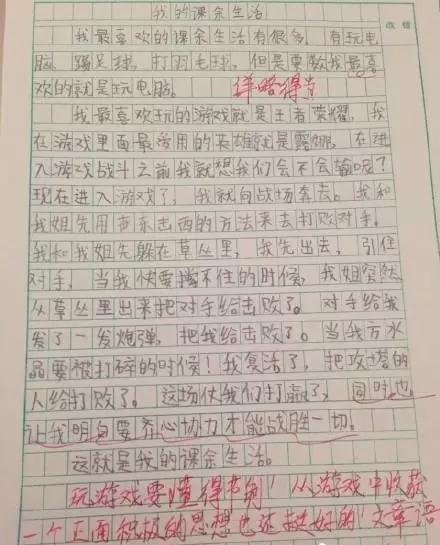 我的课余生活
改错
我最喜欢的课余生活有很多，有玩电
脑，踢足球，打羽毛球，但是要数我最喜
欢的就是玩电脑。 详略得当
我最喜欢玩的游戏就是王者荣耀，我
在游戏里面最常用的英雄就是露娜，在进
入游戏战斗之前我就想我们会不会输呢？
现在进入游戏了，我就向战场奔去。我和
我姐先用声东击西的方法来去打败对手。
我和我姐先躲在草丛里，我先出去，引住
对手，当我快要挡不住的时候，我姐突然
从草丛里出来把对手给击败了。对手给我
发了一发炮弹，把我给击败了。当我方水
晶要被打碎的时侯！我复活了，把攻塔的
人给打败了。这场仗我们打赢了，同时也
让我明白要齐心协力才能战胜一切。
这就是我的课余生活。
玩游戏要懂得节制！从游戏中收获
一个正面积极的思想也还挺好的！文章语